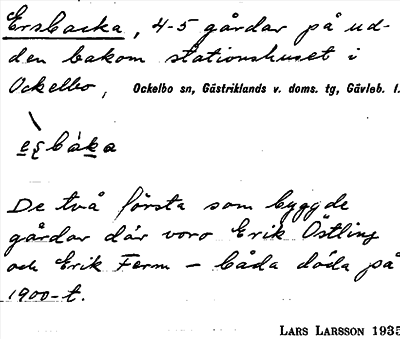 Ersbacka, 4-5 gårdar på ud-
den bakom stationshuset i
Ockelbo, Ockelbo sn, Gästriklands v. doms. tg, Gävleb. l.
De två första som byggde
gårdar där voro Erik Östling
och Erik Ferm – båda döda på
1900-t.
LARS LARSSON 1935